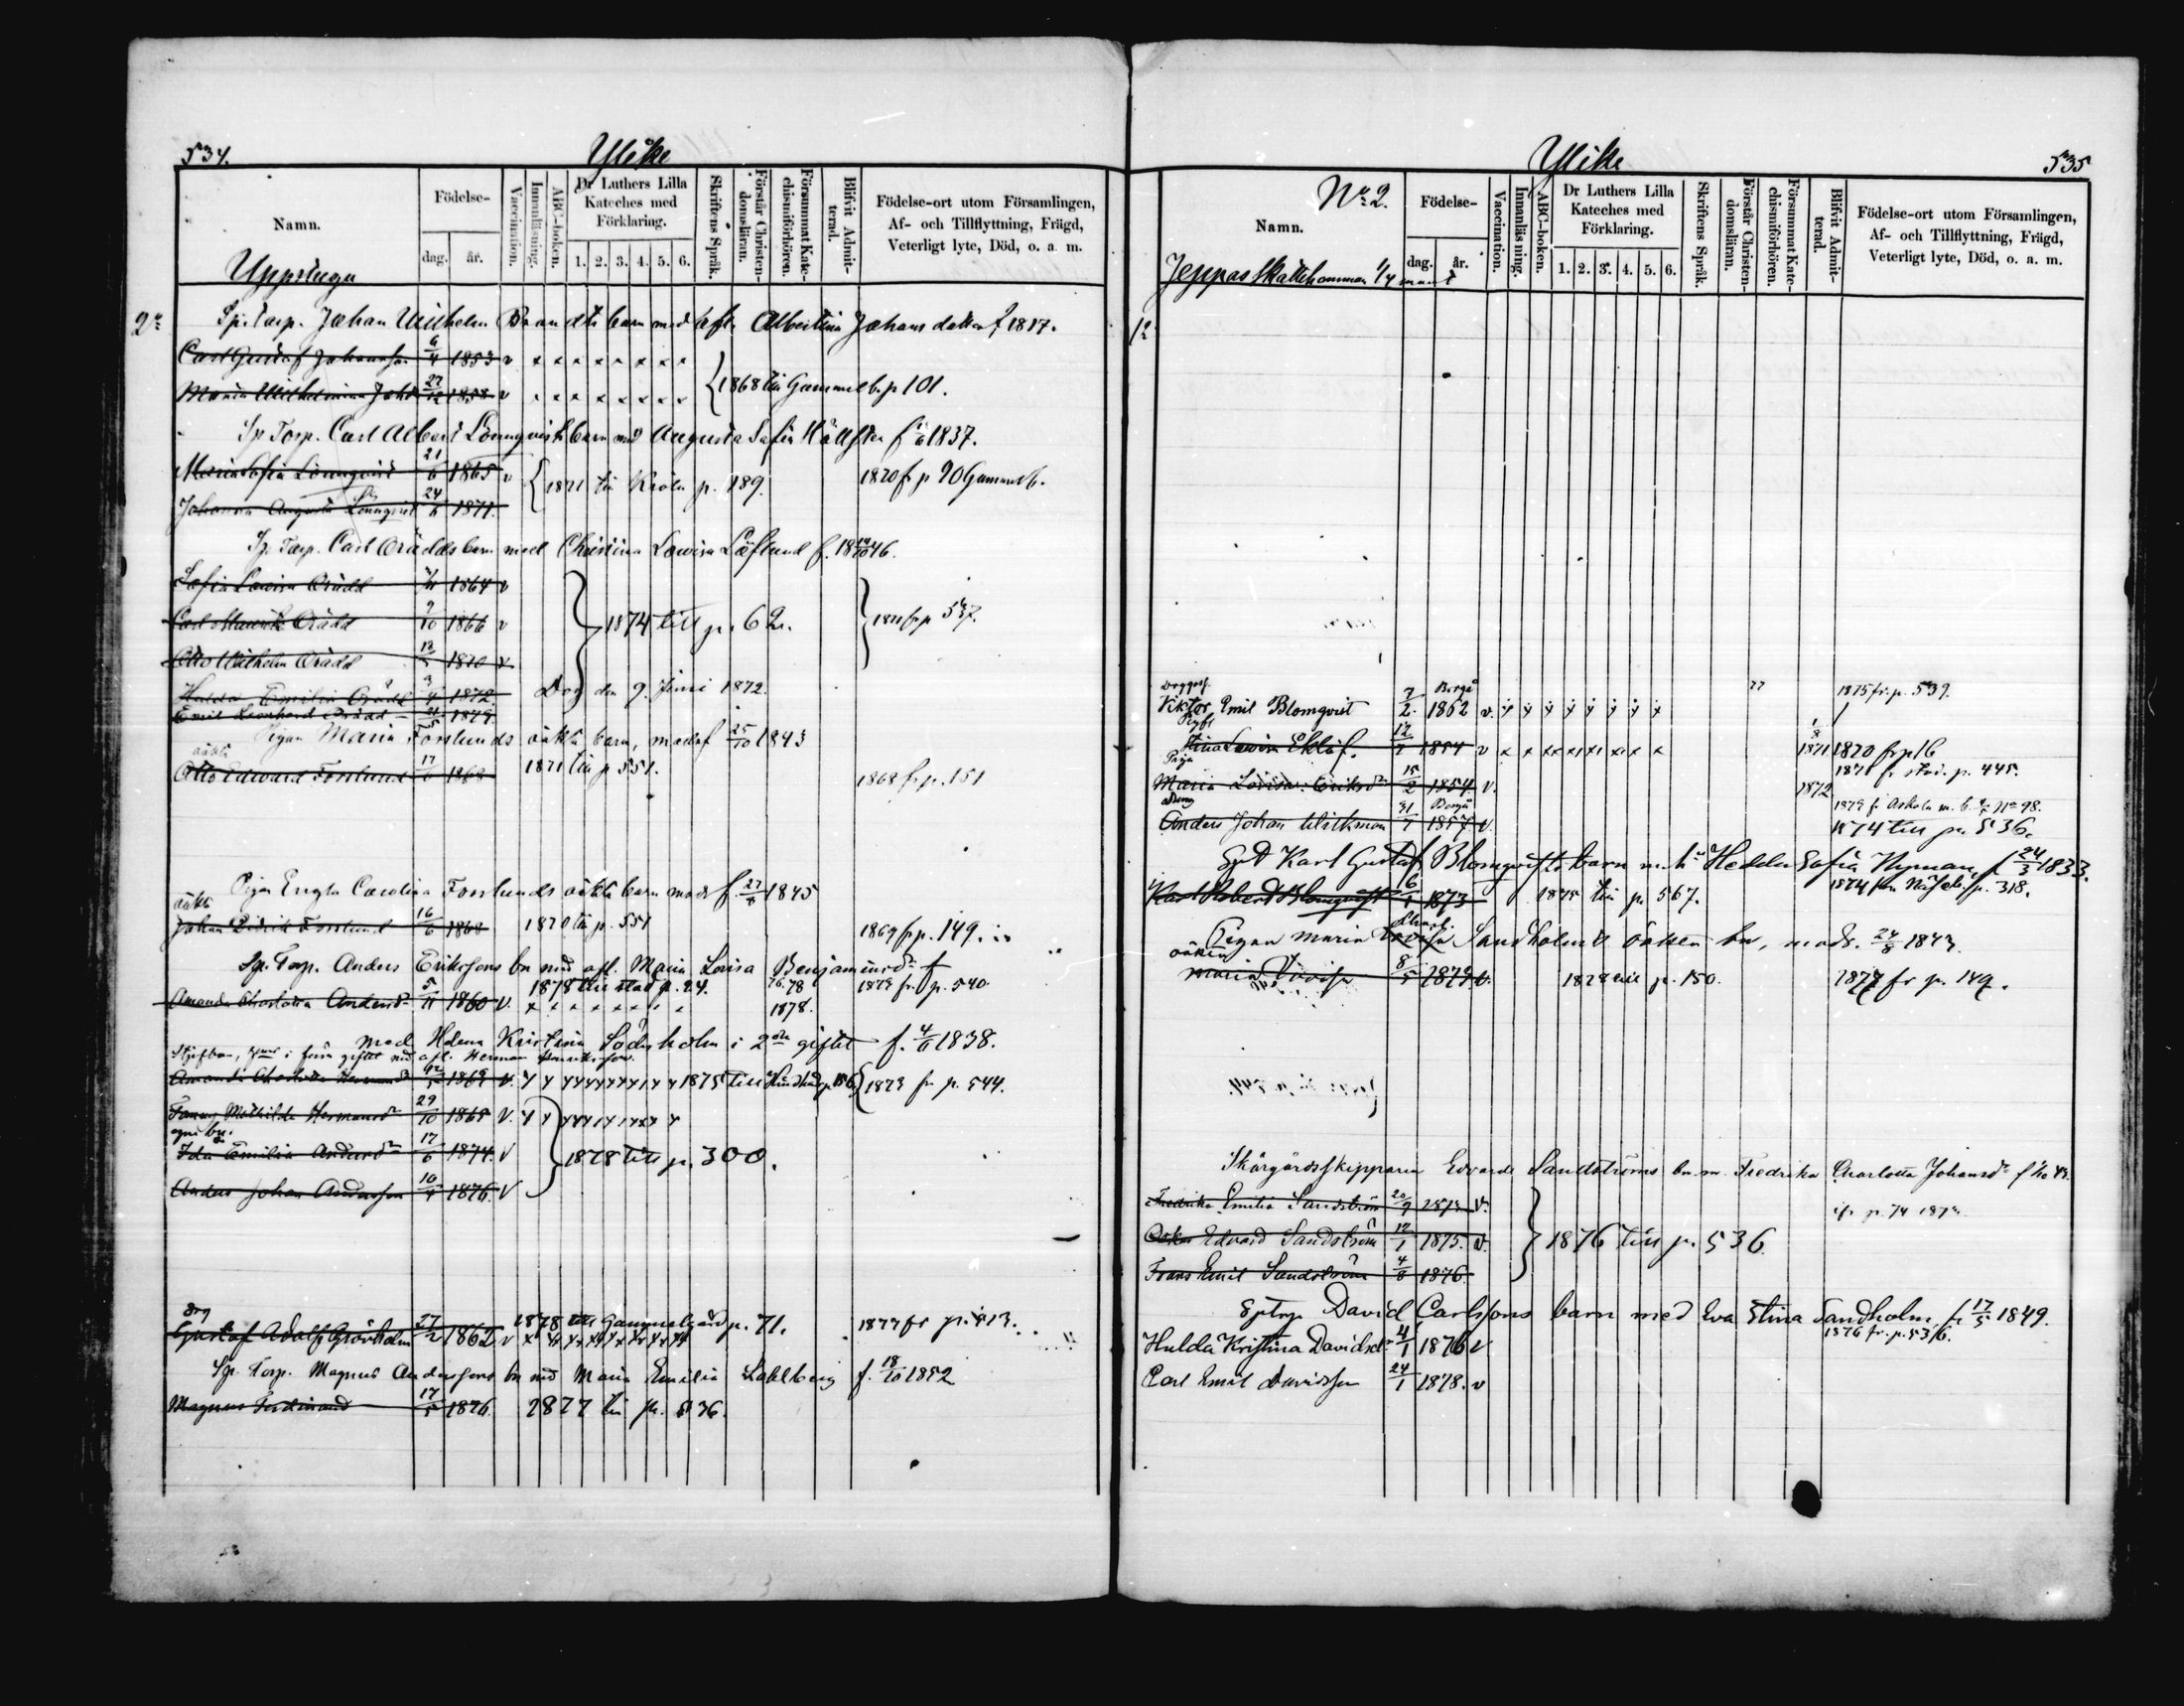 534. Ylike
Namn.
Födelse-
dag. år.
Vaccination.
Innanläsning.
ABC-boken.
Dr Luthers Lilla Kateches med Förklaring.
1. 2. 3. 4. 5. 6.
Skriftens Språk.
Förstår Christendomsläran.
Försummat Katechismiförhören.
Blifvit Admitterad.
Födelse-ort utom Församlingen, Af- och Tillflyttning, Frägd, Veterligt lyte, Död, o. a. m.
Uppstuga
Sp. Torp. Johan Wilhelm Brandts barn med afl. Albertina Johansdotter f. 1817.
Carl Gustaf Johansson 6/4 1853 v x x x x x x x x
Maria Wilhelmina Johsdr 27/12 1858 v x x x x x x x x 1868 till Gammelb. p 101.
Sp Torp. Carl Albert Lönnqvists barn med Augusta Sofia f 1837.
Maria Sofia Lönnqvist 21/6 1865 v 1871 till p. 189. 1870 fr p 90 Gammelb.
Johanna Augusta Lönnqvist 24/ 1871.
Sp. Torp. Carl Orädds barn med Christina Lovisa Löflund f. 1846.
Sofia Lovisa Orädd 1864 v
Carl Orädd 9/10 1866 v 1874 till p. 62. 1871 fr p 537.
Otto Wilhelm Orädd 13/ 1870 v
Hulda Emilia Orädd 3/4 1872. Dog den 9. Juni 1872.
Emil Leonhard Orädd 21/5 1873.
Pigan Maria Forslunds oäkta barn, modr f 25/10 1843
oäkta
Otto Edward Forslund 17/ 1868 1871 till p 551. 1868 fr p. 151
Pigan Carolina Forslunds oäkta barn modr f. 27/ 1845
oäkta
Johan Didrik Forslund 16/6 1868 1870 till p. 551 1869 fr p. 149.
Sp. Torp. Anders Erikssons bn med afl. Maria Lovisa Benjaminsdr f
1878 till stad p. 24. 76.78 1873 fr. p. 540.
Amanda Charlotta Andersdr 5/11 1860 v. x x x x x x x x 1878.
Med Helena Kristina Söderholm i 2dra giftet f. 4/6 1838.
Styfbarn, i förra giftet med afl. Herman Henriksson.
Amanda Charlotta Hermansdr 12/5 1863 v. 1875 till p 156 1873 fr p. 544.
Fanny Mathilda Hermansdr 29/10 1865 v.
egna bn.
Ida Emilia Andersdr 17/6 1874. v 1878 till p. 300.
Anders Johan Andersson 10/7 1876. v
Drg
Gustaf Adolf Grönholm 27/2 1862 v 1878 till Gammelgård p. 71. 1877 fr p. 413.
Sp. Torp. Magnus Anderssons bn med Maria Emilia Dahlberg f. 18/10 1852
Magnus Ferdinand 17/5 1876 1877 till p. 536.
Ylike 535
No. 2.
Namn.
Födelse-
dag. år.
Vaccination.
Innanläsning.
ABC-boken.
Dr Luthers Lilla Kateches med Förklaring.
1. 2. 3. 4. 5. 6.
Skriftens Språk.
Förstår Christendomsläran.
Försummat Katechismiförhören.
Blifvit Admitterad.
Födelse-ort utom Församlingen, Af- och Tillflyttning, Frägd, Veterligt lyte, Död, o. a. m.
Jeppas Skattehemman 1/4 mant
Viktor Emil Blomqvist 7/2. Borgå 1862 v. 77 1875 fr. p. 539.
Stina Lovisa Eklöf. 12/7 1854 v x x x x x x x x 1871 1870 fr p 16
Piga 1871 fr stad. p. 445.
Maria Lovisa Eriksdr 15/2 1854. v. 1872
Dreng 1873 fr Askola m. b. No 98.
Anders Johan Wikman 31/7 Borgå 1857 v. 1874 till p. 536.
Karl Gustaf Blomqvists barn m. h. Hedda Sofia Nyman, f 24/3 1833.
Karl Robert Blomqvist 6/1 1873 1875 till p. 567. 1874 fr. p. 318.
Pigan Maria Charl. Sandholms oäkta bn, modr. 24/8 1843.
oäkta
Maria Lovisa 8/5 1873 v. 1878 till p. 150. 1877 fr p. 149.
Skärgårdsskepparen Edvard Sandströms bn m. Fredrika Charlotta Johansdr
Fredrika Emilia Sandström 20/9 1873 v. fr p. 74 1873
Oskar Edvard Sandström 12/1 1875. v. 1876 till p. 536.
Frans Emil Sandström 4/8 1876
David Carlssons barn med Eva Stina Sandholm f. 17/5 1849.
1876 fr. p. 536.
Hulda Kristina Davidsdr 4/1 1876 v
Carl Emil Davidsson 24/1 1878. v